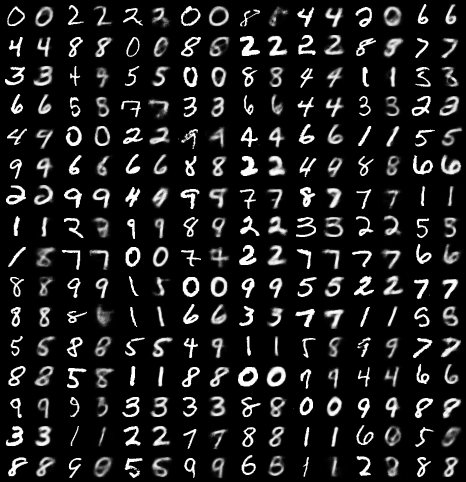 0 0 2 2 2 2 0 0 8 4 4 2 0 6 6
4 4 8 8 0 0 8 8 2 2 2 2 8 9 7 7
3 3 4 9 5 5 0 0 8 8 4 4 1 1 3 3
6 6 5 8 7 7 3 3 6 6 4 4 3 3 2 2
4 9 0 0 2 2 9 4 4 4 6 6 1 1 5 5
9 9 6 6 6 6 8 8 2 2 4 9 8 8 6 6
2 2 9 9 4 4 9 9 7 7 8 9 7 7 1 1
1 1 2 9 9 8 9 2 2 3 3 2 2 5 5
1 8 7 7 0 0 7 4 2 2 7 7 7 7 6 6
8 8 9 9 1 5 0 0 9 9 5 5 2 2 7 7
8 8 8 1 1 6 6 3 3 7 7 1 1 5 8
5 5 8 8 5 5 4 9 1 1 5 8 9 9 7 7
8 8 5 8 1 1 8 8 0 0 7 9 4 4 6 6
9 9 9 3 3 3 3 3 8 8 0 0 9 9 8 8
3 3 1 1 2 2 7 7 8 8 1 1 6 0 5
8 8 9 0 5 5 9 9 6 8 1 1 2 2 8 8